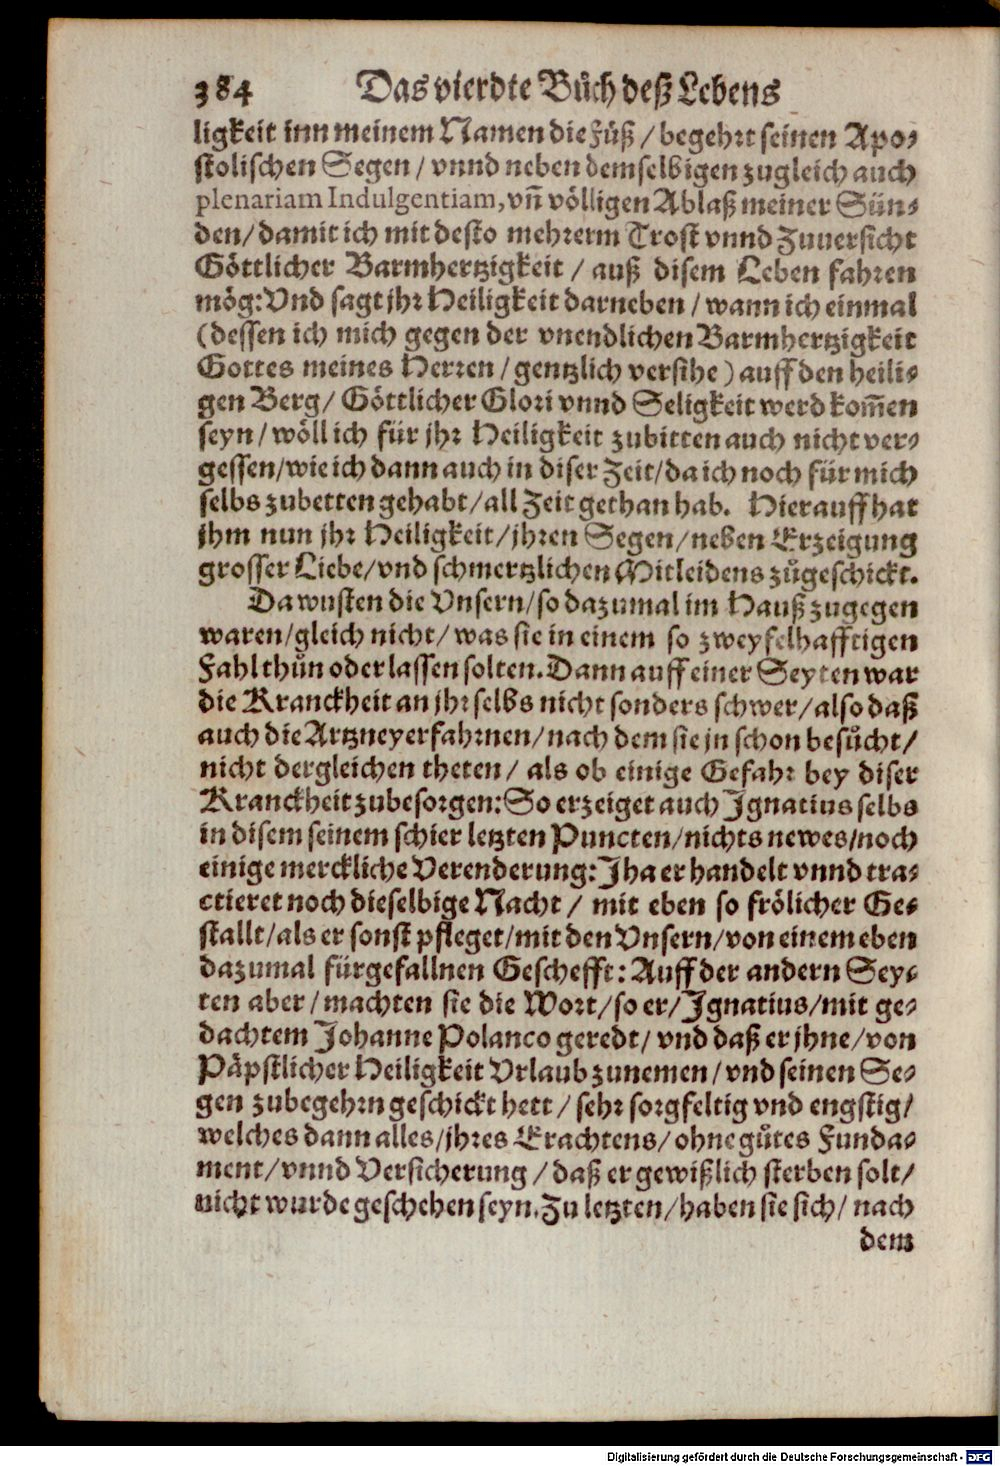 384 Das vierdte Bůch deß Lebens
ligkeit inn meinem Namen die Füß / begehrt seinen Apo-
stolischen Segen / vnnd neben demselbigen zugleich auch
plenariam Indulgentiam, vñ völligen Ablaß meiner Sün-
den / damit ich mit desto mehrerm Trost vnnd Zuuersicht
Göttlicher Barmhertzigkeit / auß disem Leben fahren
mög: Vnd sagt jhr Heiligkeit darneben / wann ich einmal
(dessen ich mich gegen der vnendlichen Barmhertzigkeit
Gottes meines Herren / gentzlich versihe) auff den heili-
gen Berg / Göttlicher Glori vnnd Seligkeit werd kom̃en
seyn / wöll ich für jhr Heiligkeit zubitten auch nicht ver-
gessen / wie ich dann auch in diser Zeit / da ich noch für mich
selbs zubetten gehabt / all Zeit gethan hab. Hierauff hat
jhm nun jhr Heiligkeit / jhren Segen / neben Erzeigung
grosser Liebe / vnd schmertzlichen Mitleidens zůgeschickt.
Da wusten die Vnsern / so dazumal im Hauß zugegen
waren / gleich nicht / was sie in einem so zweyfelhafftigen
Fahl thůn oder lassen solten. Dann auff einer Seyten war
die Kranckheit an jhr selbs nicht sonders schwer / also daß
auch die Artzneyerfahrnen / nach dem sie jn schon besůcht /
nicht dergleichen theten / als ob einige Gefahr bey diser
Kranckheit zubesorgen: So erzeiget auch Ignatius selbs
in disem seinem schier letzten Puncten / nichts newes / noch
einige merckliche Verenderung: Jha er handelt vnnd tra-
ctieret noch dieselbige Nacht / mit eben so frölicher Ge-
stallt / als er sonst pfleget / mit den Vnsern / von einem eben
dazumal fürgefallnen Geschefft: Auff der andern Sey-
ten aber / machten sie die Wort / so er / Ignatius / mit ge-
dachtem Johanne Polanco geredt / vnd daß er jhne / von
Päpstlicher Heiligkeit Vrlaub zunemen / vnd seinen Se-
gen zubegehrn geschickt hett / sehr sorgfeltig vnd engstig /
welches dann alles / jhres Erachtens / ohne gůtes Funda-
ment / vnnd Versicherung / daß er gewißlich sterben solt /
nicht wurde geschehen seyn. Zu letzten / haben sie sich / nach
dem
Digitalisierung gefördert durch die Deutsche Forschungsgemeinschaft - DFG